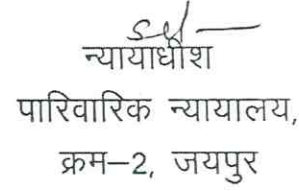 sd —
न्यायाधीश
पारिवारिक न्यायालय,
क्रम–2, जयपुर